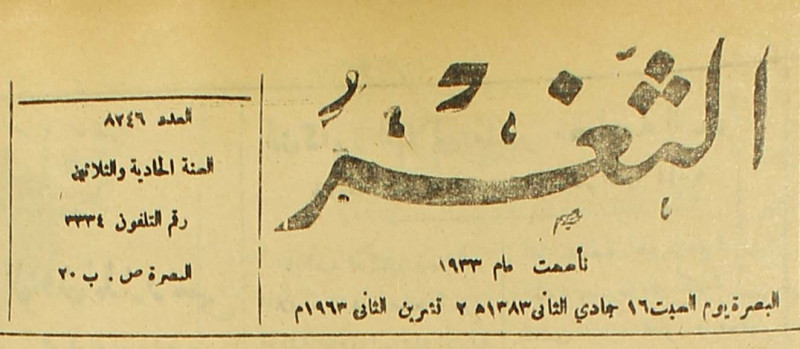 الثَّغْرُ
تأسست عام ١٩٣٣
البصرة يوم السبت ١٦ جمادي الثاني ١٣٨٣ه ٢ تشرين الثاني ١٩٦٣م
العدد ٨٢٤٦
السنة الحادية والثلاثين
رقم التلفون ٣٣٣٤
البصرة ص . ب ٢٠